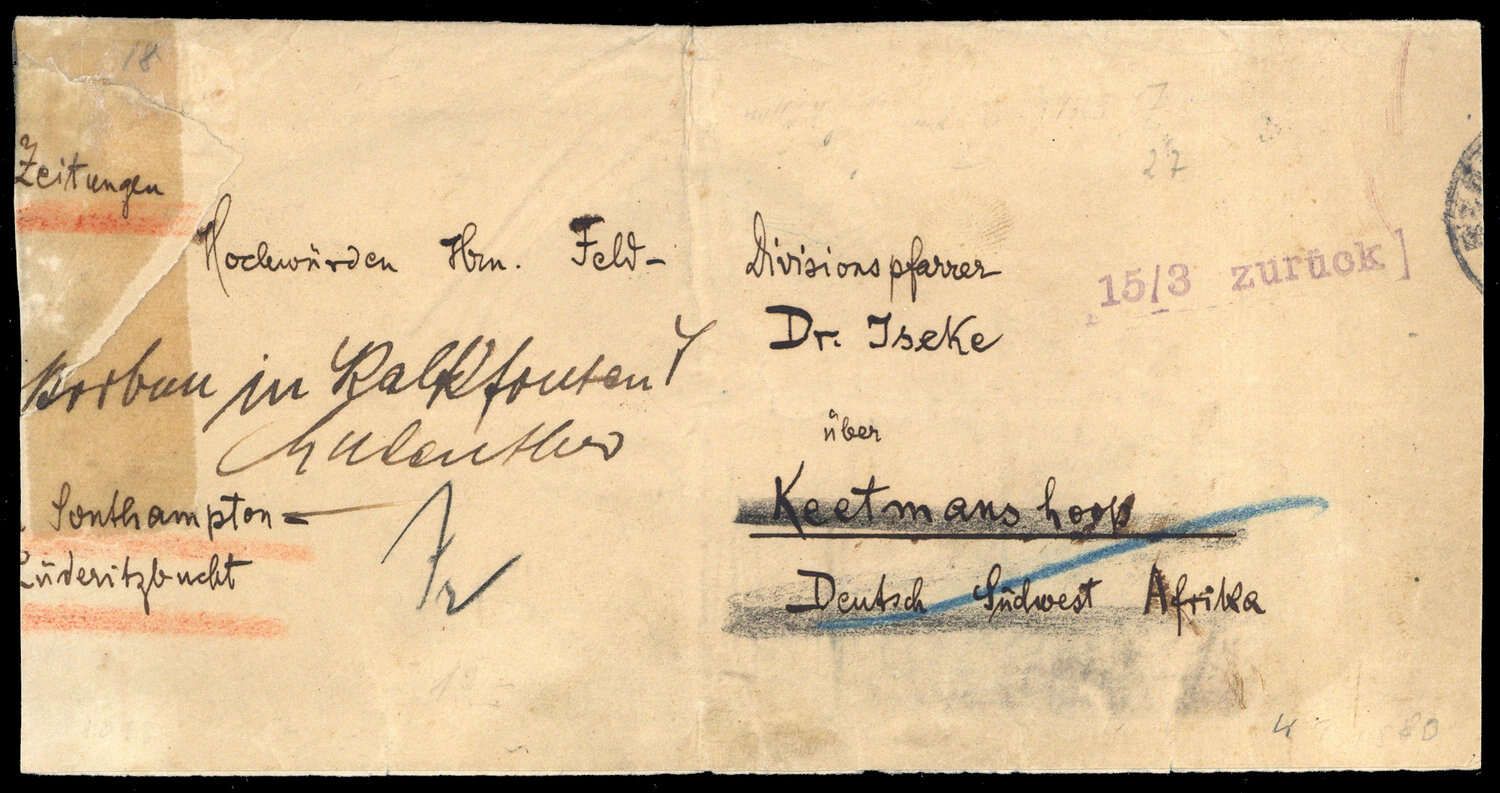 18
27
Zeitungen
Hochwürden Hrn. Feld- Divisionspfarrer
15/3 zurück]
Dr. Iseke
in Kalkfontein
über
Southampton-
Keetmanshoop
Lüderitzbucht
Deutsch Südwest Afrika
4
80